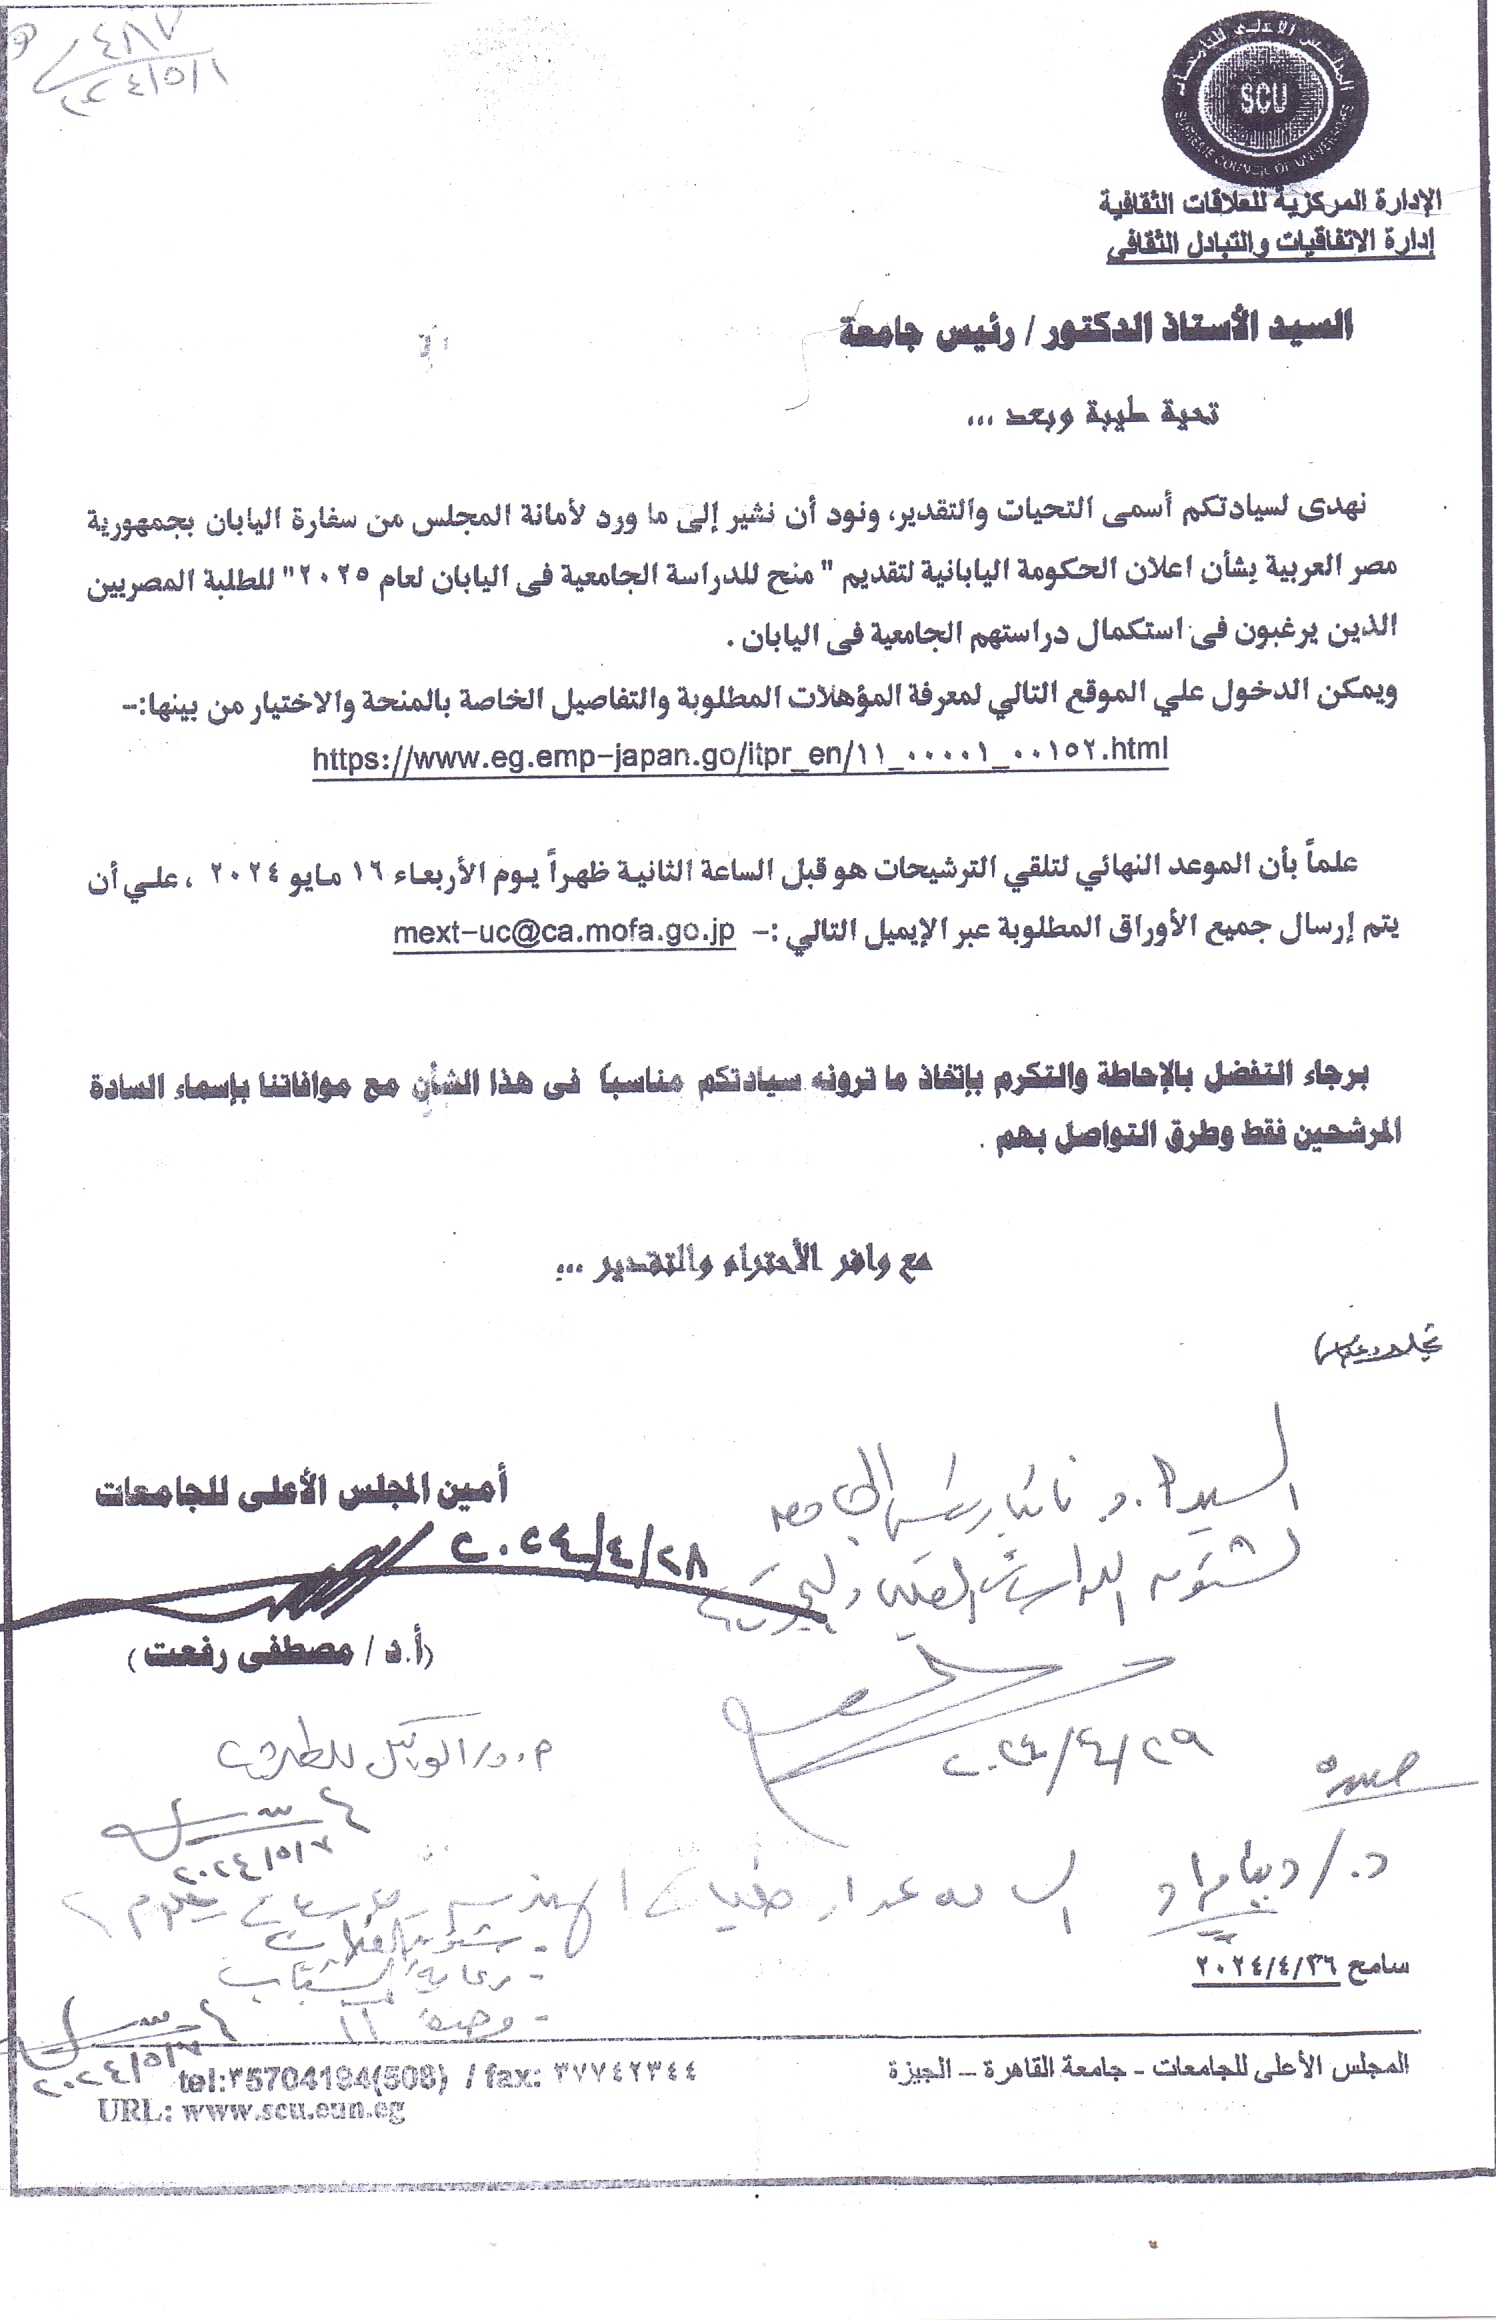 ٤٨٧
٢٠٢٤/٥/١
المجلس الأعلى للجامعات
SCU
SUPREME COUNCIL OF UNIVERSITIES
الإدارة المركزية للعلاقات الثقافية
إدارة الاتفاقيات والتبادل الثقافى
السيد الأستاذ الدكتور / رئيس جامعة
تحية طيبة وبعد ...
نهدى لسيادتكم أسمى التحيات والتقدير، ونود أن نشير إلى ما ورد لأمانة المجلس من سفارة اليابان بجمهورية
مصر العربية بشأن اعلان الحكومة اليابانية لتقديم " منح للدراسة الجامعية فى اليابان لعام ٢٠٢٥" للطلبة المصريين
الذين يرغبون فى استكمال دراستهم الجامعية فى اليابان .
ويمكن الدخول علي الموقع التالي لمعرفة المؤهلات المطلوبة والتفاصيل الخاصة بالمنحة والاختيار من بينها:-
https://www.eg.emp-japan.go/itpr_en/١١_٠٠٠٠١_٠٠١٥٢.html
علماً بأن الموعد النهائي لتلقي الترشيحات هو قبل الساعة الثانية ظهراً يوم الأربعاء ١٦ مايو ٢٠٢٤ ، علي أن
يتم إرسال جميع الأوراق المطلوبة عبر الإيميل التالي :- mext-uc@ca.mofa.go.jp
برجاء التفضل بالإحاطة والتكرم بإتخاذ ما ترونه سيادتكم مناسبا فى هذا الشأن مع موافاتنا بإسماء السادة
المرشحين فقط وطرق التواصل بهم .
مع وافر الأحترام والتقدير ...
السيد أ.د نائب رئيس الجامعة
لشئون الدراسات العليا والبحوث
أمين المجلس الأعلى للجامعات
٢٠٢٤/٤/٢٨
(أ.د / مصطفى رفعت)
٢٠٢٤/٤/٢٩
٢٠٢٤/٥/٢
د. / دينا مراد
رعاية الشباب
سامح ٢٠٢٤/٤/٣٦
المجلس الأعلى للجامعات - جامعة القاهرة – الجيزة
tel:٣5704194(508) / fax: ٣٧٧٤٢٣٤٤
URL: www.scu.eun.eg